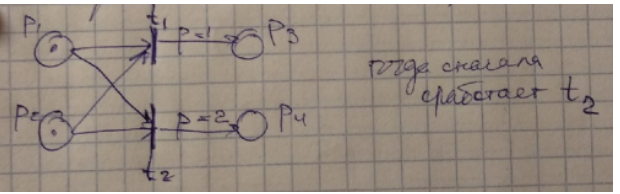 P1
t1
P=1
P3
P2
P=2
P4
t2
тогда сначала
сработает t2